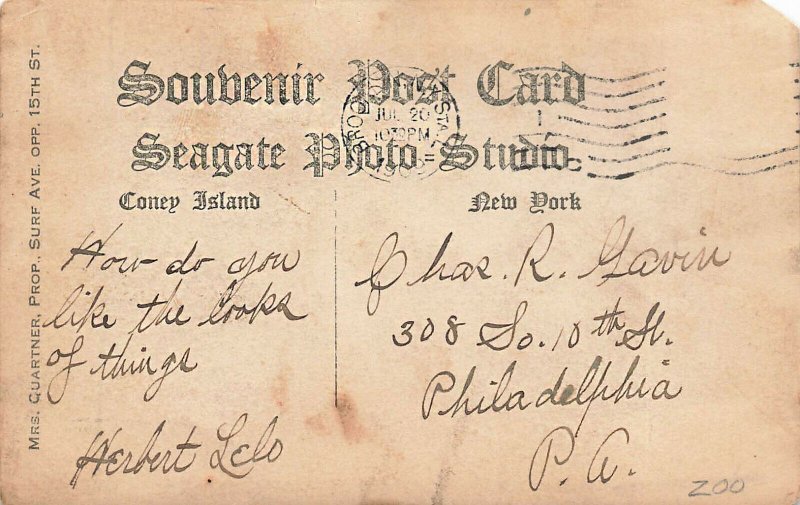 Souvenir Post Card
Seagate Photo Studio
Coney Island New York
MRS. QUARTNER, PROP., SURF AVE. OPP. 15TH ST.
JUL 20
10 30 PM
How do you
like the looks
of things
Herbert Lelo
Chas. R. Gavin
308 So. 10th St.
Philadelphia
P. A.
200